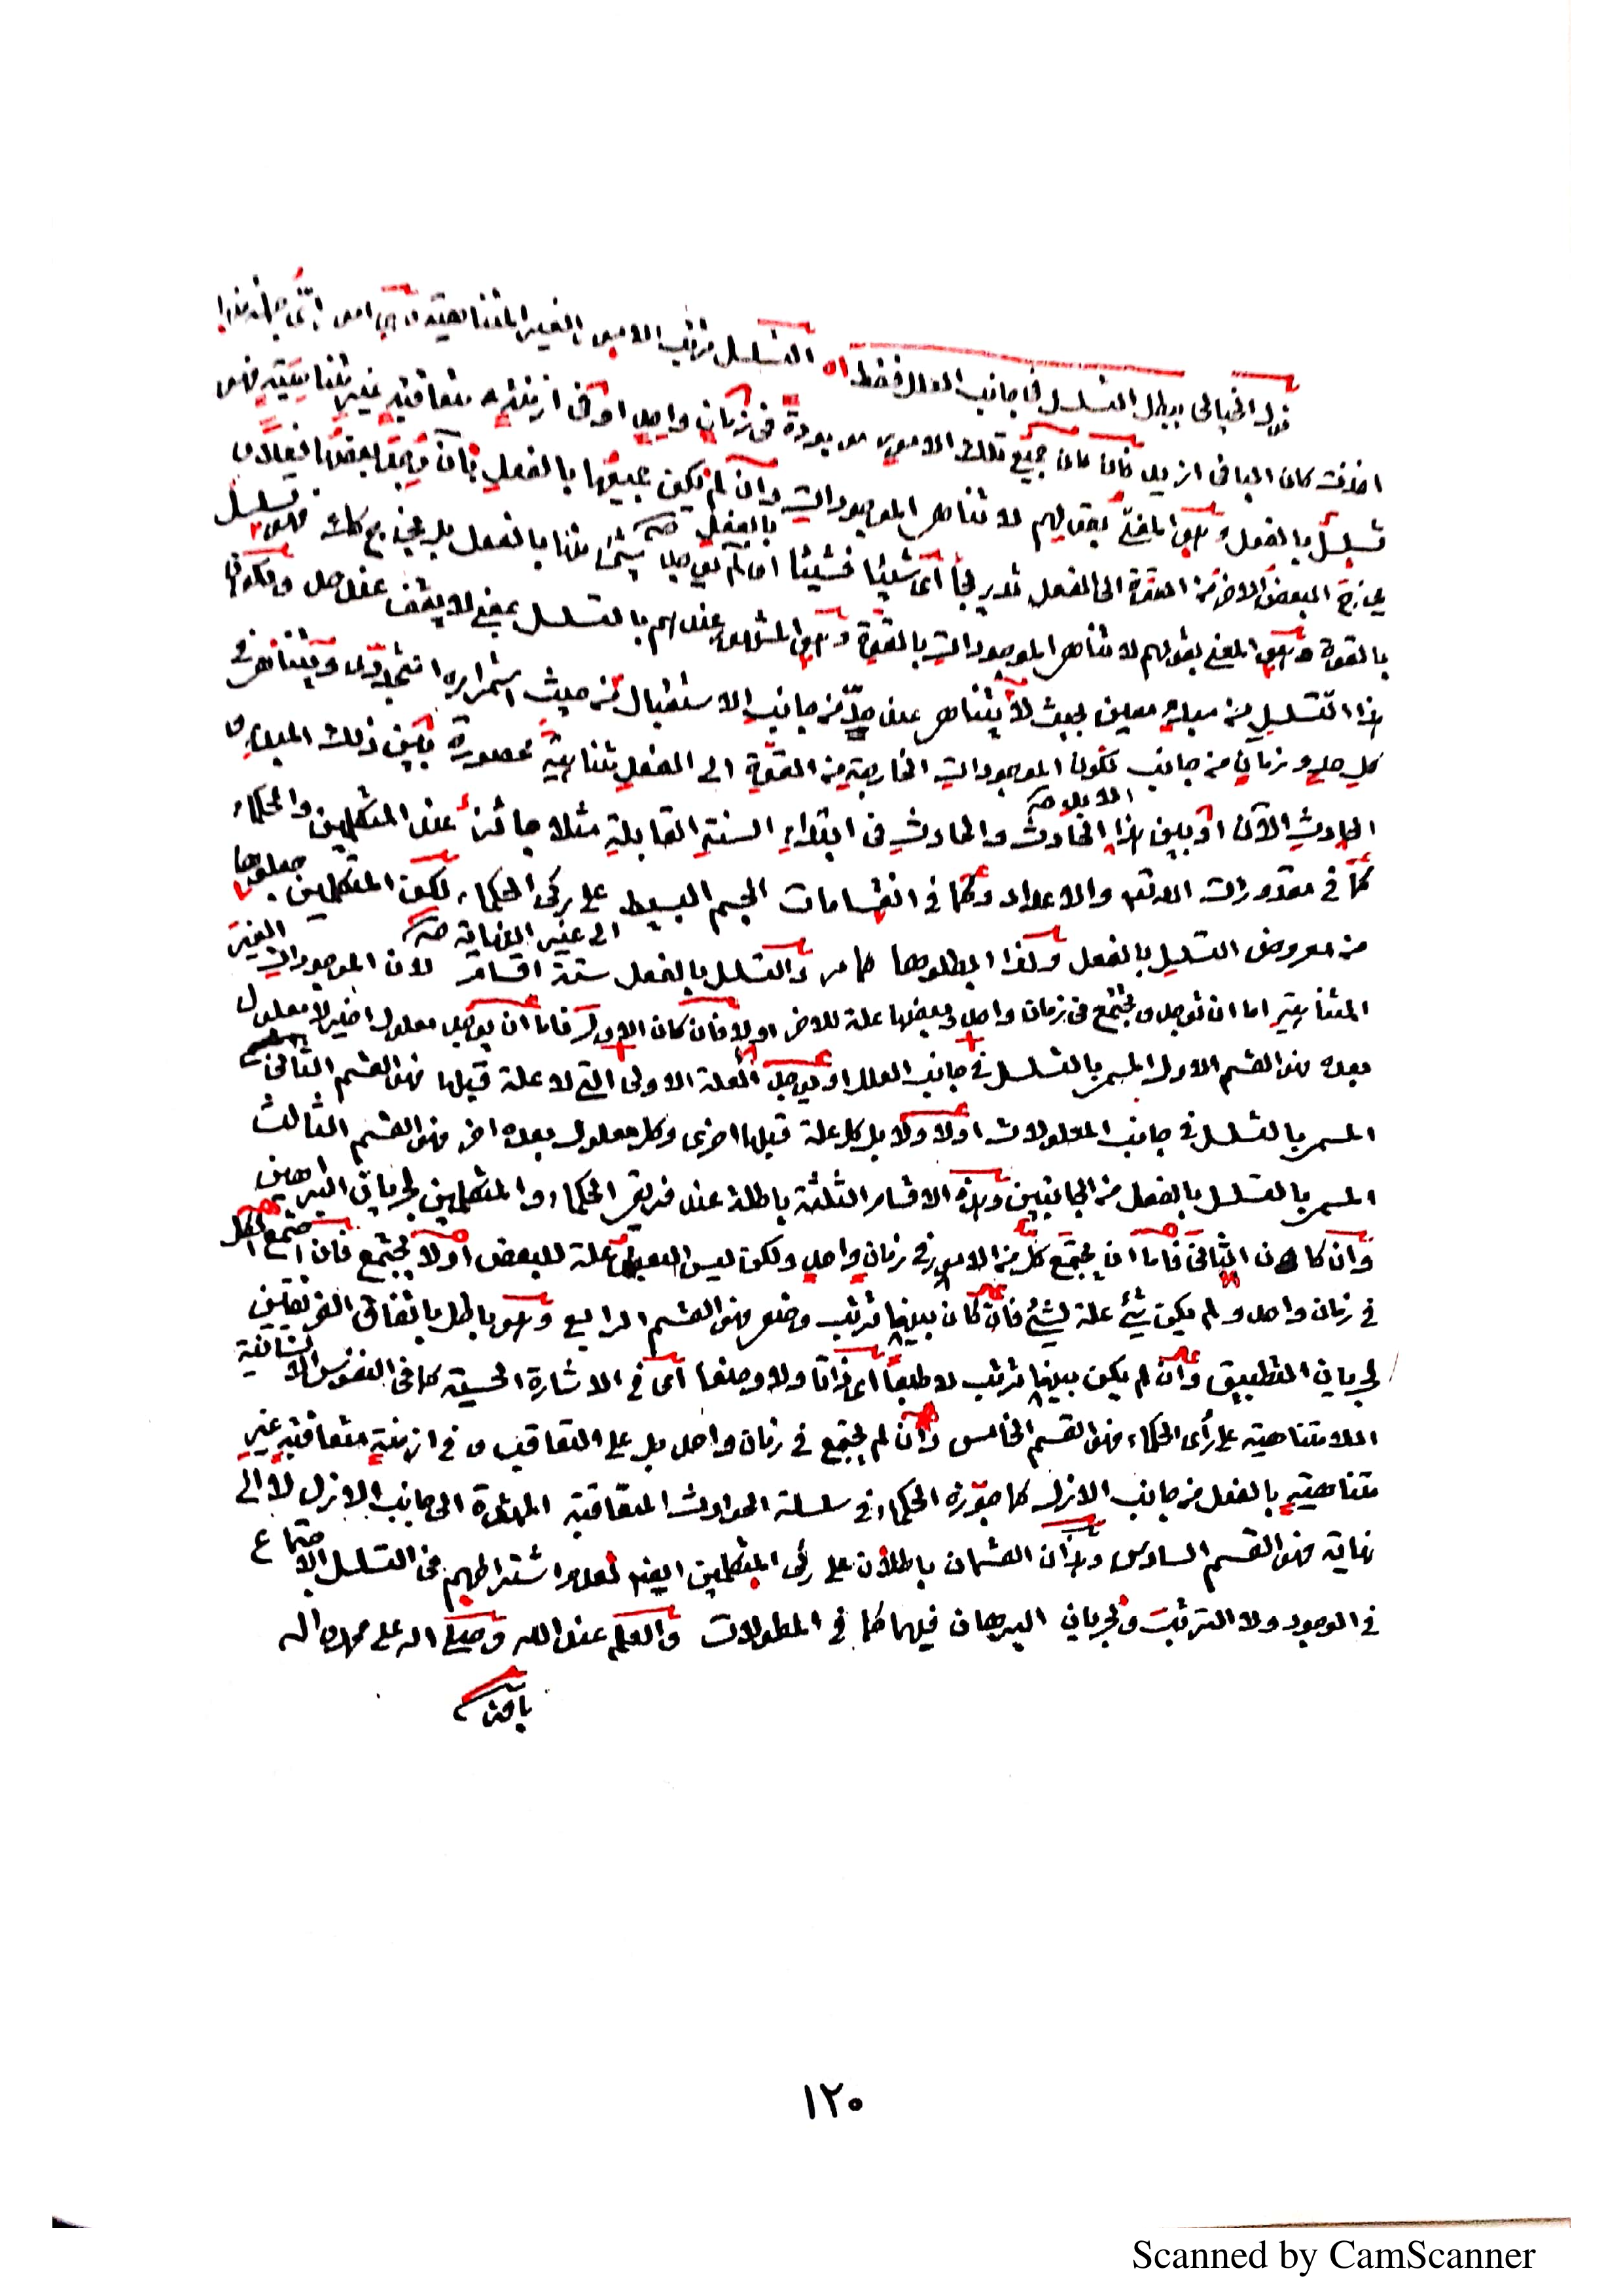 قول الخيالى يبطل التسلسل فى جانب العلل فقط اه التسلسل ترتب الامور الغير المتناهية
اخذت كان الباقى ازيد فان كان جميع تلك الامور موجودة فى زمان واحد او فى ازمنة متعاقبة غير متناهية فهو
تسلسل بالفعل وهو المعنىّ بقولهم لا تناهى الموجودات بالفعل صح وان لم يكن جميعها بالفعل بأن
يخرج البعض الاخر من القوة الى الفعل تدريجاً اى شيئا فشيئا اى لم يوجد شئ منها بالفعل بل فهو تسلسل
بالقوة وهو المعنى بقولهم لا تناهى الموجودات بالقوة وهو المشهور عندهم بالتسلسل بمعنى لا يقف عند حد ويكون
هذا التسلسل من مبدء معين بحيث لا يتناهى عند حدّ من جانب الاستقبال من حيث استمراره ويتناهى فى
كل حد وزمان من جانب لكون الموجودات الخارجة من القوة الى الفعل متناهية محصورة بين ذلك المبدء و
الحادث الآن او بين هذا الحادث والحادث فى ابتداء السنة القابلة مثلا جائز عند المتكلمين والحكماء
كما فى مقدورات الله تعـ والاعداد وكما فى انقسامات الجسم البسيط الى غير النهاية صح على رأى الحكماء، لكن المتكلمين جعلوها
من معروض التسلسل بالفعل ولذا ابطلوها كما مر والتسلسل بالفعل ستة اقسام لان الموجودات الغير
المتناهية اما ان توجد وتجتمع فى زمان واحد وبعضها علة للاخر او لا فان كان الاول فاما ان يوجد معلول اخير لا معلول
بعده فهو القسم الاول المسمى بالتسلسل فى جانب العلل او يوجد العلة الاولى التى لا علة قبلها فهو القسم الثانى
المسمى بالتسلسل فى جانب المعلولات او لا ولا بل كل علة قبلها اخرى وكل معلول بعده اخر فهو القسم الثالث
المسمى بالتسلسل بالفعل من الجانبين وهذه الاقسام الثلثة باطلة عند فريقى الحكماء والمتكلمين لجريان البراهين
وان كان الثانى فاما ان يجتمع كل من الامور فى زمان واحد ولكن ليس البعض علة للبعض او لا يجتمع فان اجتمع الكل
فى زمان واحد ولم يكن شئ علة لشئ فان كان بينها ترتب وضعى فهو القسم الرابع وهو باطل باتفاق الفريقين
لجريان التطبيق وان لم يكن بينها ترتب لا طبعاً اى ذاتا ولا وضعا اى فى الاشارة الحسية كما فى النفوس الانسانية
اللا متناهية على رأى الحكماء فهو القسم الخامس وان لم يجتمع فى زمان واحد بل على التعاقب و فى ازمنة متعاقبة غير
متناهية بالفعل من جانب الازل كما جوّزه الحكماء فى سلسلة الحوادث المتعاقبة الى جانب الازل لا الى
نهاية فهو القسم السادس وهذان القسمان باطلان على رأى المتكلمين ايضا لعدم اشتراطهم فى التسلسل الاجتماع
فى الوجود ولا الترتب ولجريان البرهان فيهما كما فى المطولات والعلم عند الله وصلى الله على محمد واله
باقر
١٢٠
Scanned by CamScanner